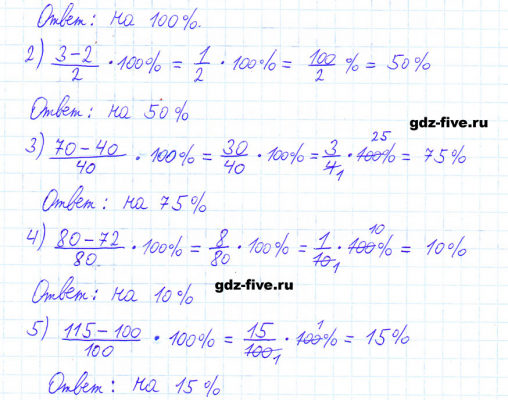 Ответ: на 100%.
2) (3-2)/2 · 100% = 1/2 · 100% = 100/2 % = 50%
Ответ: на 50%
gdz-five.ru
3) (70-40)/40 · 100% = 30/40 · 100% = 3/4 1 · 100% 25 = 75%
Ответ: на 75%
4) (80-72)/80 · 100% = 8/80 · 100% = 1/10 1 · 100% 10 = 10%
Ответ: на 10%
gdz-five.ru
5) (115-100)/100 · 100% = 15/100 1 · 100% 1 = 15%
Ответ: на 15%